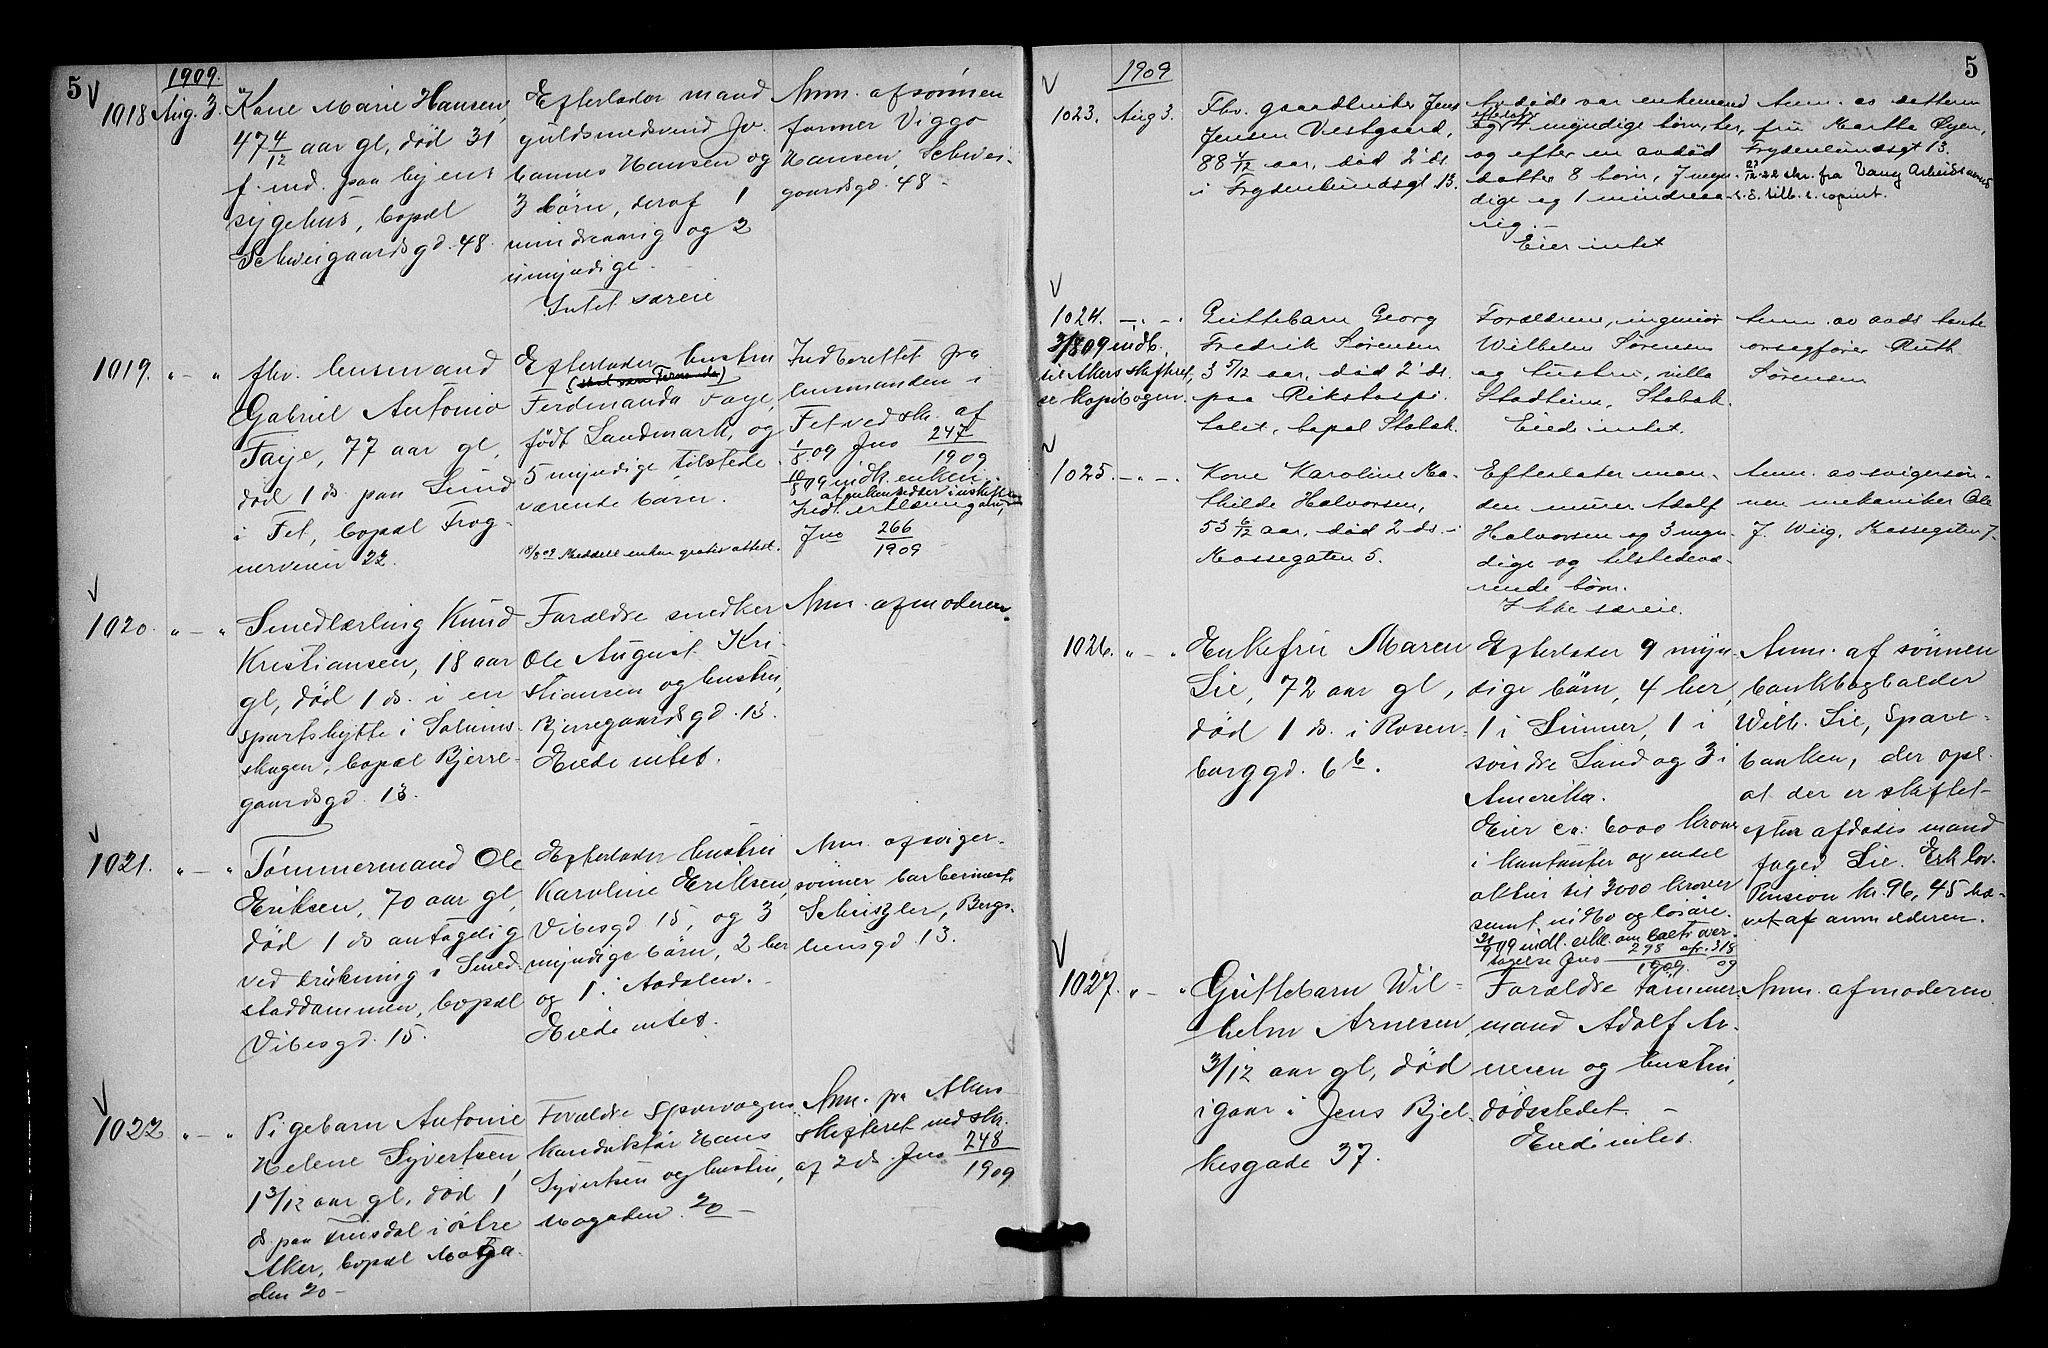 5
1909.
1018 Aug. 3.
Kone Marie Hansen,
47 4/12 aar gl, død 31
f. md. paa byens
sygehus, bopæl
Schweigaardsgd. 48.
Efterlader mand
guldsmedsvend Jo-
hannes Hansen og
3 børn, deraf 1
mindreaarig og 2
umyndige.
Intet særeie
Anm. af sønnen
former Viggo
Hansen, Schwei-
gaardsgd. 48 -
1019. " - "
fhv. husmand
Gabriel Antonio
Faye, 77 aar gl,
død 1 ds. paa Lund
i Fet, bopæl Frog-
nerveien 22.
Efterlader hustru
Ferdinanda Faye,
født Landmark, og
5 myndige tilstede-
værende børn.
18/8 09 Meddelt enken gratis attest.
Indberettet fra
lensmanden i
Fet ved skr. af
1/8 09 Jno 247/1909
10/8 09 indk. enken
Jno 266/1909
1020. " - "
Smedlærling Knud
Kristiansen, 18 aar
gl, død 1 ds. i en
sportshytte i Sørums-
skogen, bopæl Bjerre-
gaardsgd. 13.
Forældre snedker
Ole August Kri-
stiansen og hustru,
Bjerregaardsgd. 13.
Eiede intet.
Anm. af moderen.
1021. " - "
Tømmermand Ole
Eriksen, 70 aar gl,
død 1 ds antagelig
ved drukning i Smed-
staddammen, bopæl
Vibesgd. 15.
Efterlader hustru
Karoline Eriksen,
Vibesgd. 15, og 3
myndige børn, 2 her
og 1 i Aadalen.
Eiede intet.
Anm. af sviger-
sønnen barbermest.
Schüssler, Bergs-
liensgd. 13.
1022 " - "
Pigebarn Antonie
Helene Syvertsen
1 3/12 aar gl, død 1
ds. paa Furusdal i østre
Aker, bopæl Moga-
den 20 -
Forældre sporvogns-
konduktør Hans
Syvertsen og hustru,
Mogaden 20 -
Anm. fra Akers
skifteret ved skr.
af 2 ds. Jno 248/1909
5
1909
1023. Aug 3.
Fhv. gaardbruker Jens
Jensen Vestgaard,
88 4/12 aar, død 2 ds.
i Frydenlundsgt 13.
Avdøde var enkemand
og efterlater 4 myndige børn, her,
og efter en avdød
datter 8 børn, 7 myn-
dige og 1 mindreaa-
rig. -
Eier intet
Anm. av datteren
fru Martha Øyen,
Frydenlundsgt 13.
1024. - " -
3/8 09 indb.
til Akers skifteret,
se kopibogen.
Guttebarn Georg
Fredrik Sørensen
3 5/12 aar, død 2 ds.
paa Rikshospi-
talet, bopæl Stabæk.
Forældrene, ingeniør
Wilhelm Sørensen
og hustru, villa
Stadheim, Stabæk.
Eied intet.
Anm. av avds tante
Ruth
Sørensen
1025. - " -
Kone Karoline Ma-
thilde Halvorsen,
53 6/12 aar, død 2 ds. i
Mossegaten 5.
Efterlater man-
den murer Adolf
Halvorsen og 3 myn-
dige og tilstedevæ-
rende børn.
Ikke særeie.
Anm. av svigersøn-
nen mekaniker Ole
J. Wiig, Mossegaten 7.
1026. " - "
Enkefru Maren
Lie, 72 aar gl,
død 1 ds. i Rosen-
borggd. 6 b.
Efterlader 9 myn-
dige børn, 4 her,
1 i Lunner, 1 i
søndre Land og 3 i
Amerika.
Eier ca: 6000 kroner
i kontanter og endel
aktier til 3000 kroner
samt indbo og løsøre.
21/9 09 indl. erkl. om boets over-
tagelse Jno 298/1909. cfr. 318/09
Anm. af sønnen
bankbogholder
Wilh. Lie, Spare-
banken, der opl.
at der er skiftet
efter afdødes mand
foged Lie. Enk lov.
Pension kr. 96,45 hæ-
vet af anmelderen.
1027. " - "
Guttebarn Wil-
helm Arnesen,
3/12 aar gl, død
igaar i Jens Bjel-
kesgade 37.
Forældre tømmer-
mand Adolf Ar-
nesen og hustru,
dødsstedet. -
Eiede intet.
Anm. af moderen.